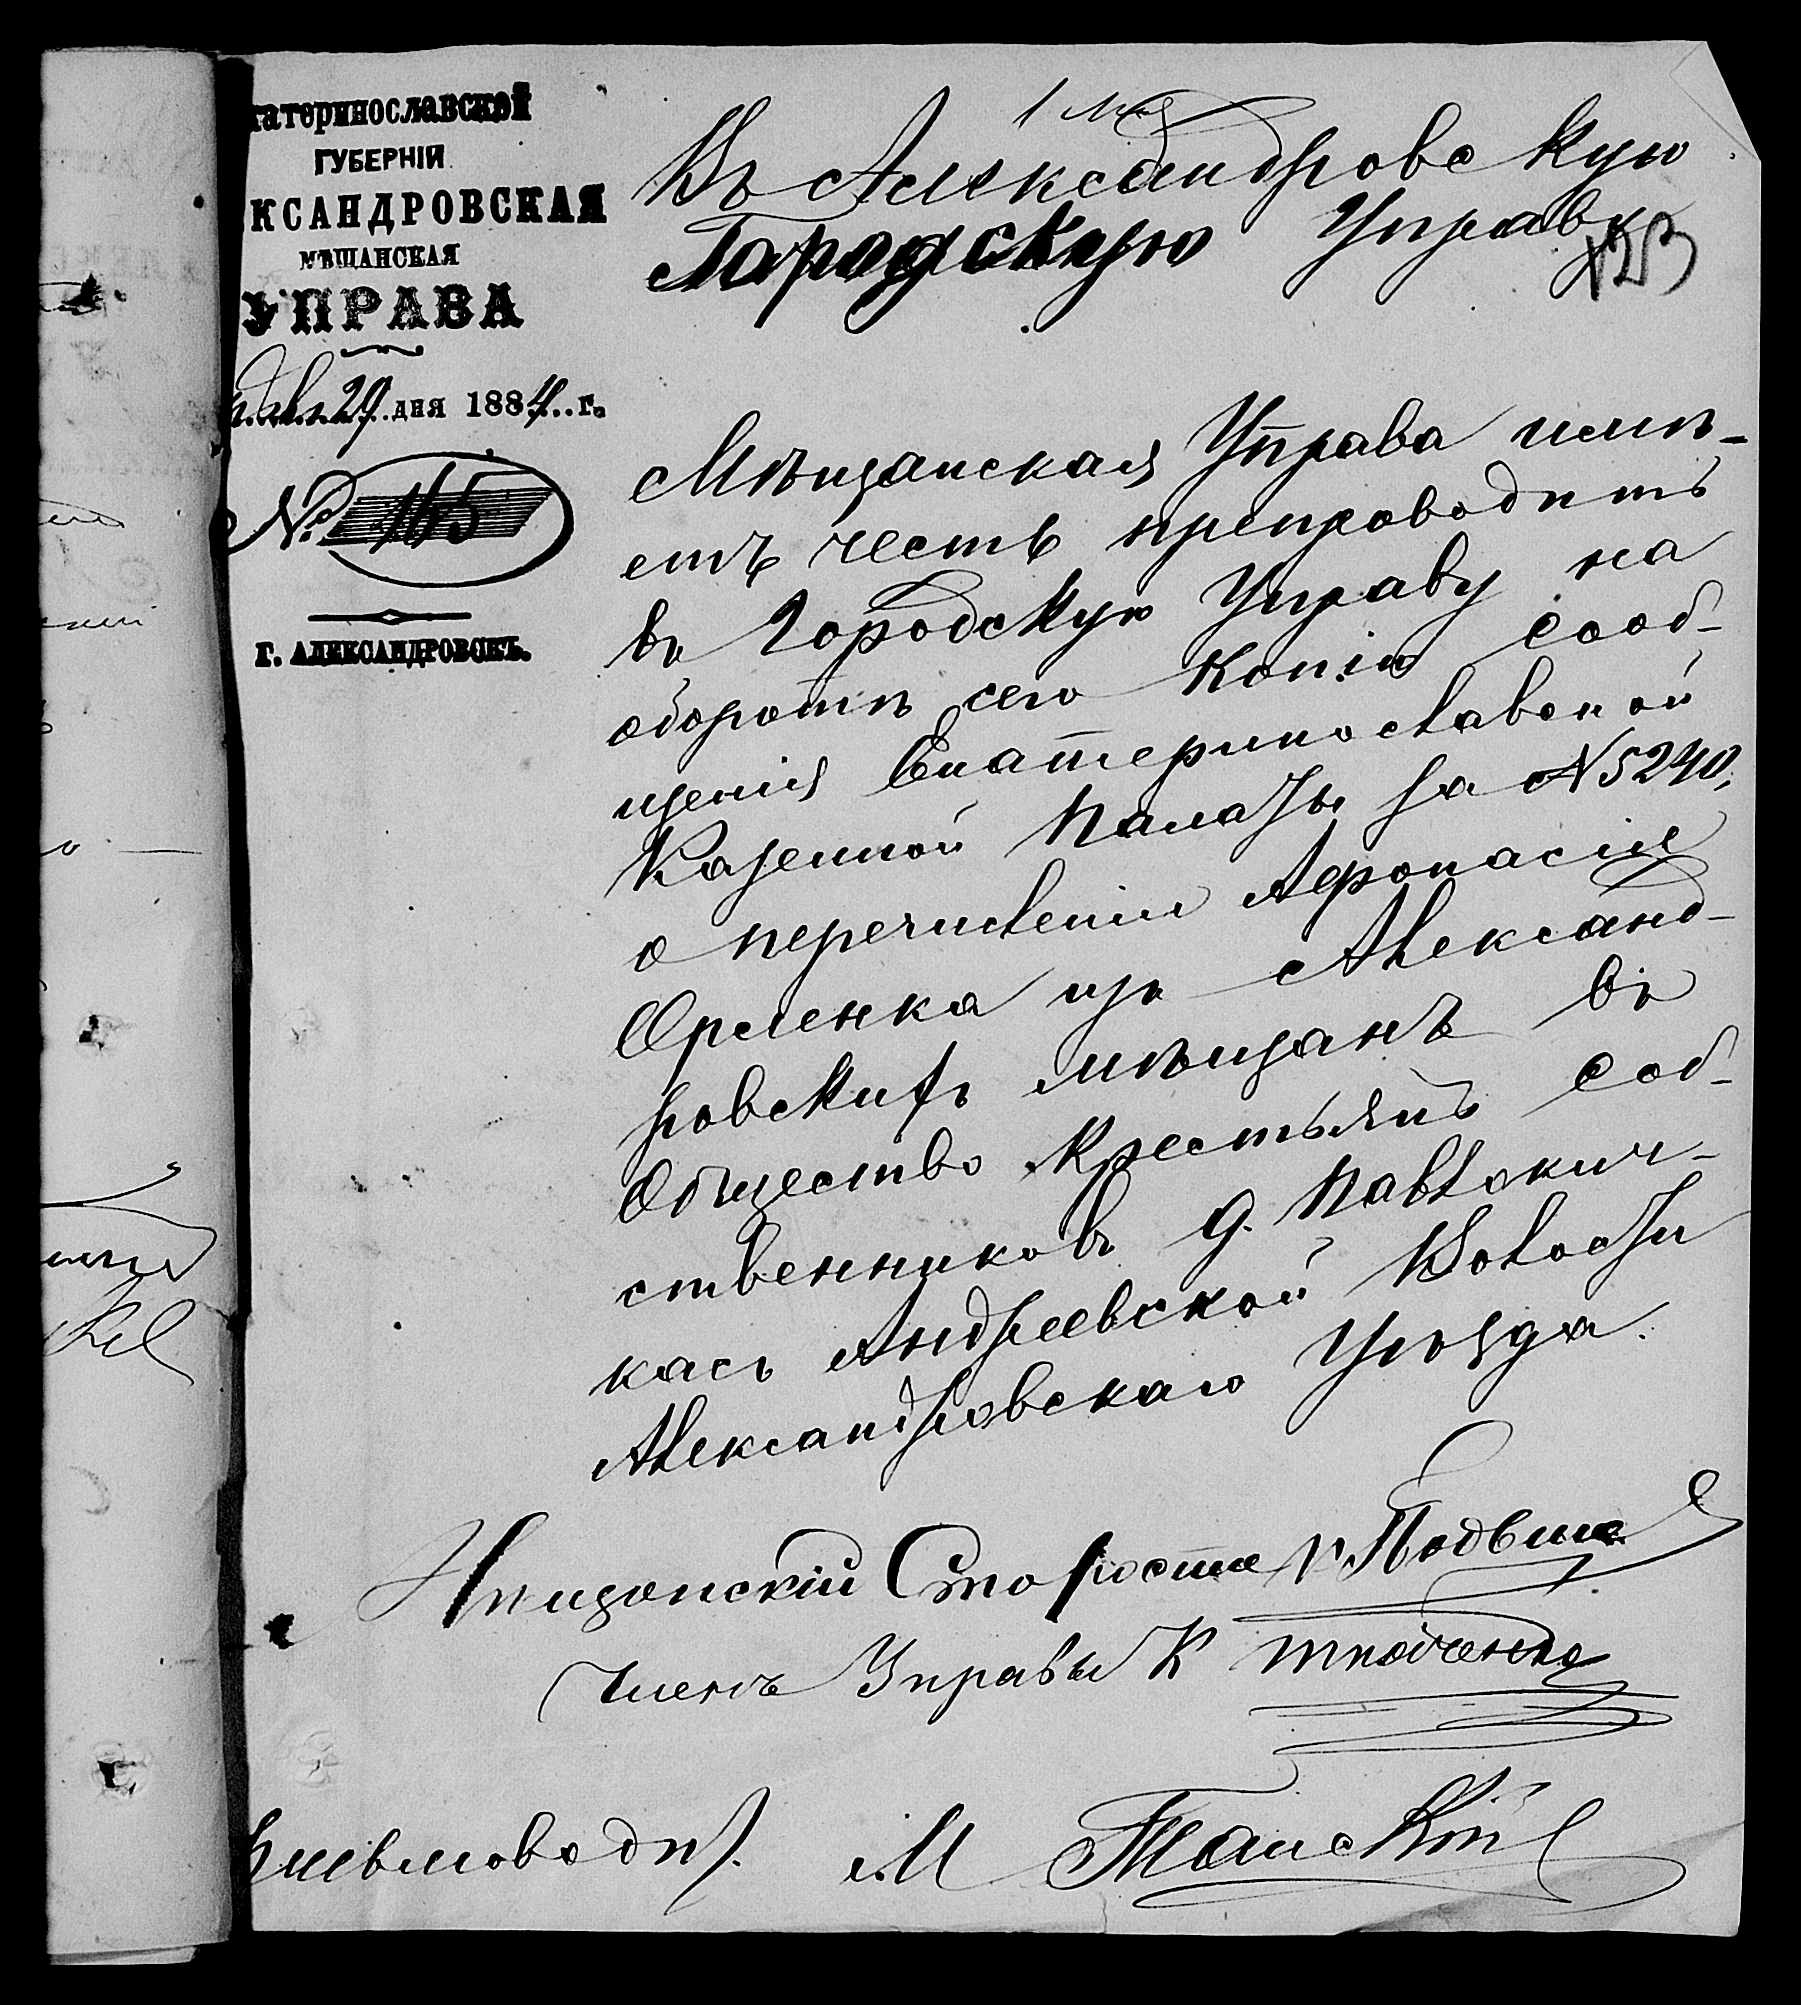 катеринославской
ГУБЕРНІИ
КСАНДРОВСКАЯ
МѢЩАНСКАЯ
УПРАВА
29 дня 1884 г.
№ 165
Г. АЛЕКСАНДРОВСКЪ.
1 мая
Въ Александровскую
Городскую Управу
123
Мѣщанская Управа имѣ-
етъ честь препроводить
въ Городскую Управу на
оборотѣ сего копію сооб-
щенія Екатеринославской
Казенной Палаты за №5240,
о перечисленіи Афонасія
Орленка изъ Александ-
ровскихъ мѣщанъ въ
Общество крестьянъ соб-
ственниковъ д. Павлокич-
касъ Андреевской Волости
Александровскаго Уѣзда.
Мѣщанскій Староста
Членъ Управы К Ткаченко
Письмоводит. М